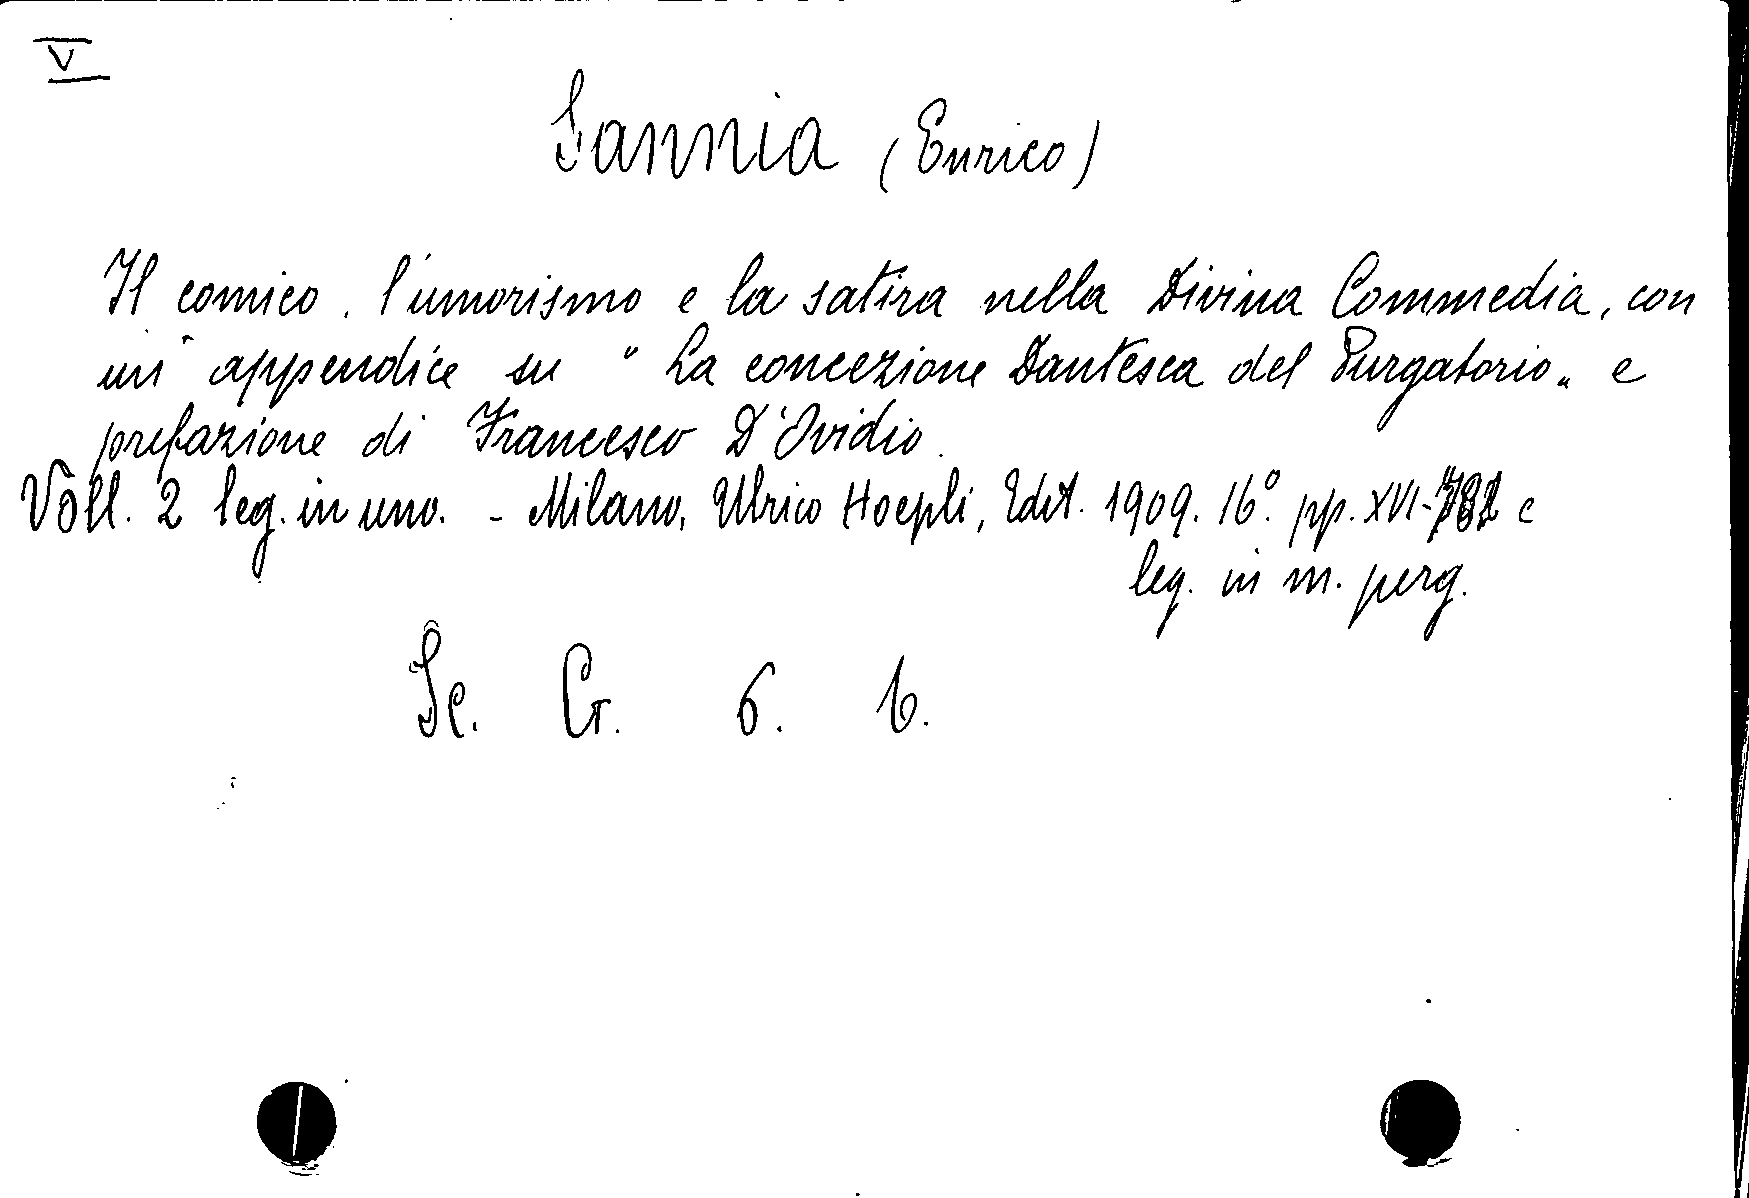 V
Sannia (Enrico)
Il comico, l'umorismo e la satira nella Divina Commedia, con
un' appendice su "La concezione Dantesca del Purgatorio„ e
prefazione di Francesco D'Ovidio.
Voll. 2 leg. in uno. - Milano, Ulrico Hoepli, Edit. 1909. 16.° pp. XVI- e
leg. in m. perg.
Sc. Cr. 6. 6.